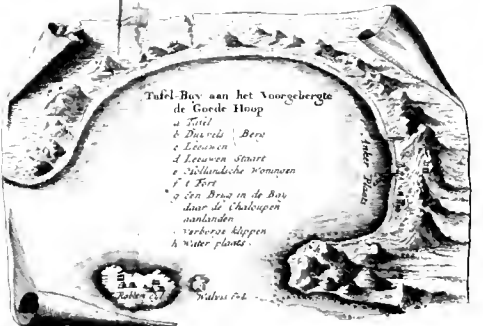 Tafel-Bay aan het Voorgebergte
de Goede Hoop
a Tafel
b Duyvels } Berg
c Leeuwen
d Leeuwen Staart
e Hollandsche Woningen
f 't Fort
g Een Brug in de Bay
daar de Chaloupen
aanlanden
verborge klippen
h Water plaats.
Water Plaats
Robben Eyl.
Walvis Eyl.